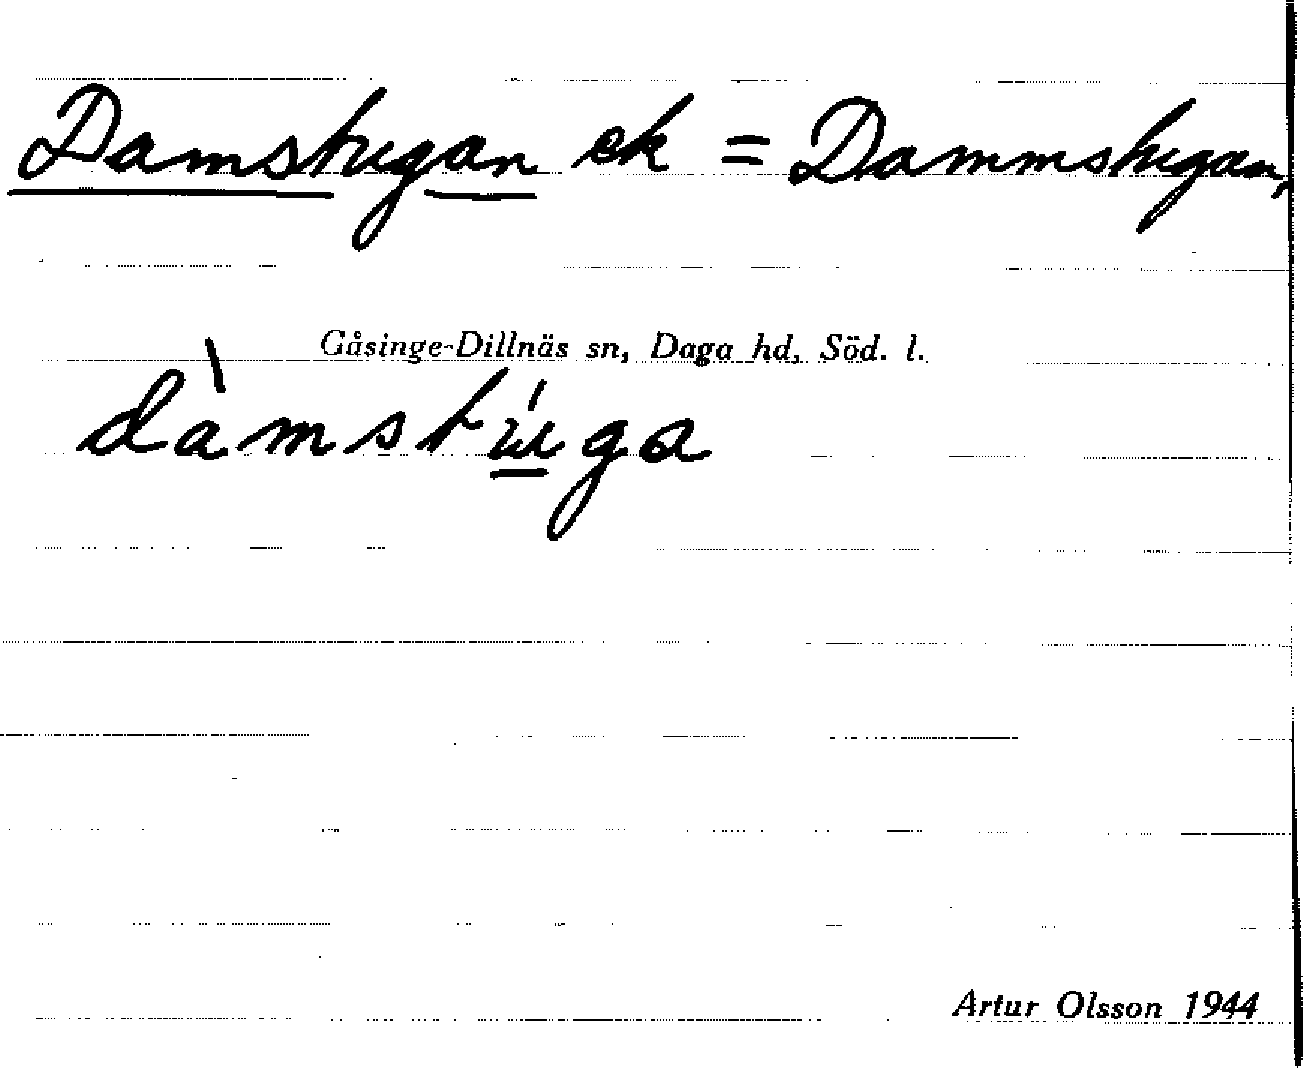 Damstugan ek = Dammstugan,
Gåsinge-Dillnäs sn, Daga hd, Söd. l.
dàmstúga
Artur Olsson 1944